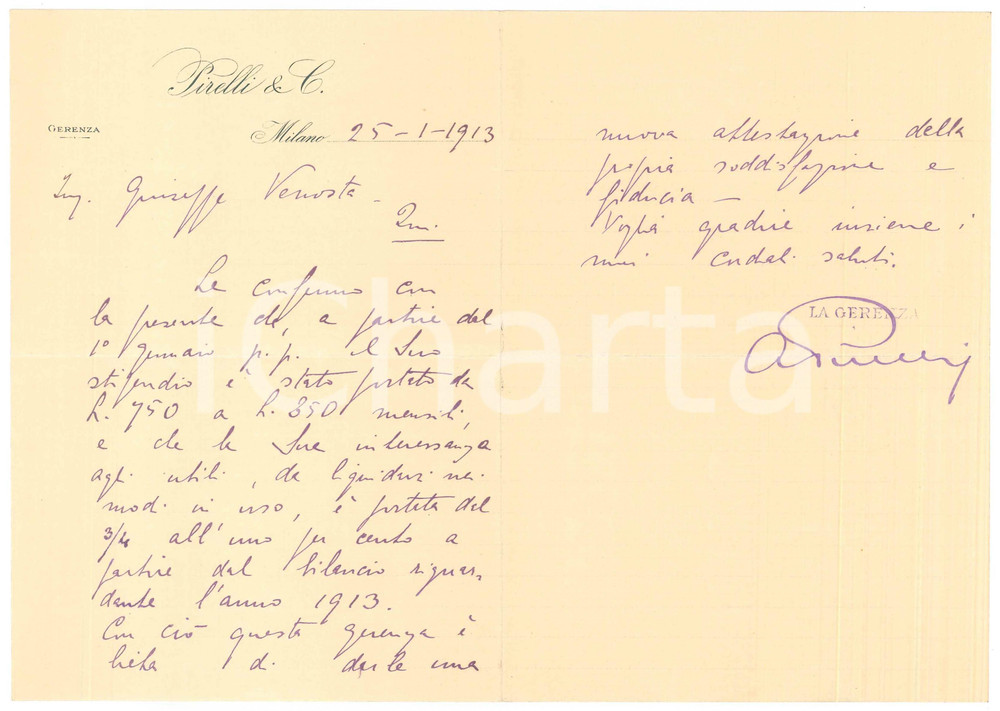 Pirelli & C.
GERENZA
Milano 25-1-1913
Ing. Giuseppe Venosta -
Le confermo con
la presente che, a partire dal
1° gennaio p.p. il Suo
stipendio è stato portato da
L. 750 a L. 850 mensili,
e che la Sua interessanza
agli utili, da liquidarsi nei
modi in uso, è portata dai
3/4 all'uno per cento a
partire dal bilancio riguar-
dante l'anno 1913.
Con ciò questa gerenza è
lieta di darle una
nuova attestazione della
propria soddisfazione e
fiducia -
Voglia gradire insieme i
miei cordiali saluti.
LA GERENZA
iCharta